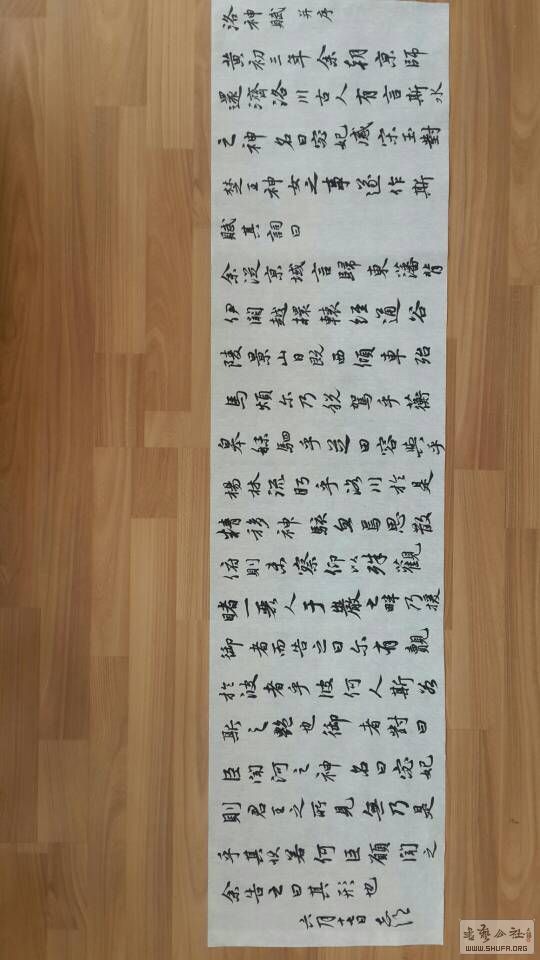 洛神賦 并序
黄初三年余朝京師
還濟洛川古人有言斯水
之神名曰宓妃感宋玉對
楚王神女之事遂作斯
賦其詞曰
余從京域言歸東藩背
伊闕越轘轅經通谷
陵景山日既西傾車殆
馬煩尔乃税駕乎蘅
皋秣駟乎芝田容與乎
楊林流眄乎洛川於是
精移神駭忽焉思散
俯則未察仰以殊觀
睹一麗人于巖之畔乃援
御者而告之曰尔有覿
於彼者乎彼何人斯若
斯之艶也御者對曰
臣聞河之神名曰宓妃
則君王之所見無乃是
乎其状若何臣願聞之
余告之曰其形也
六月十七日
WWW.SHUFA.ORG